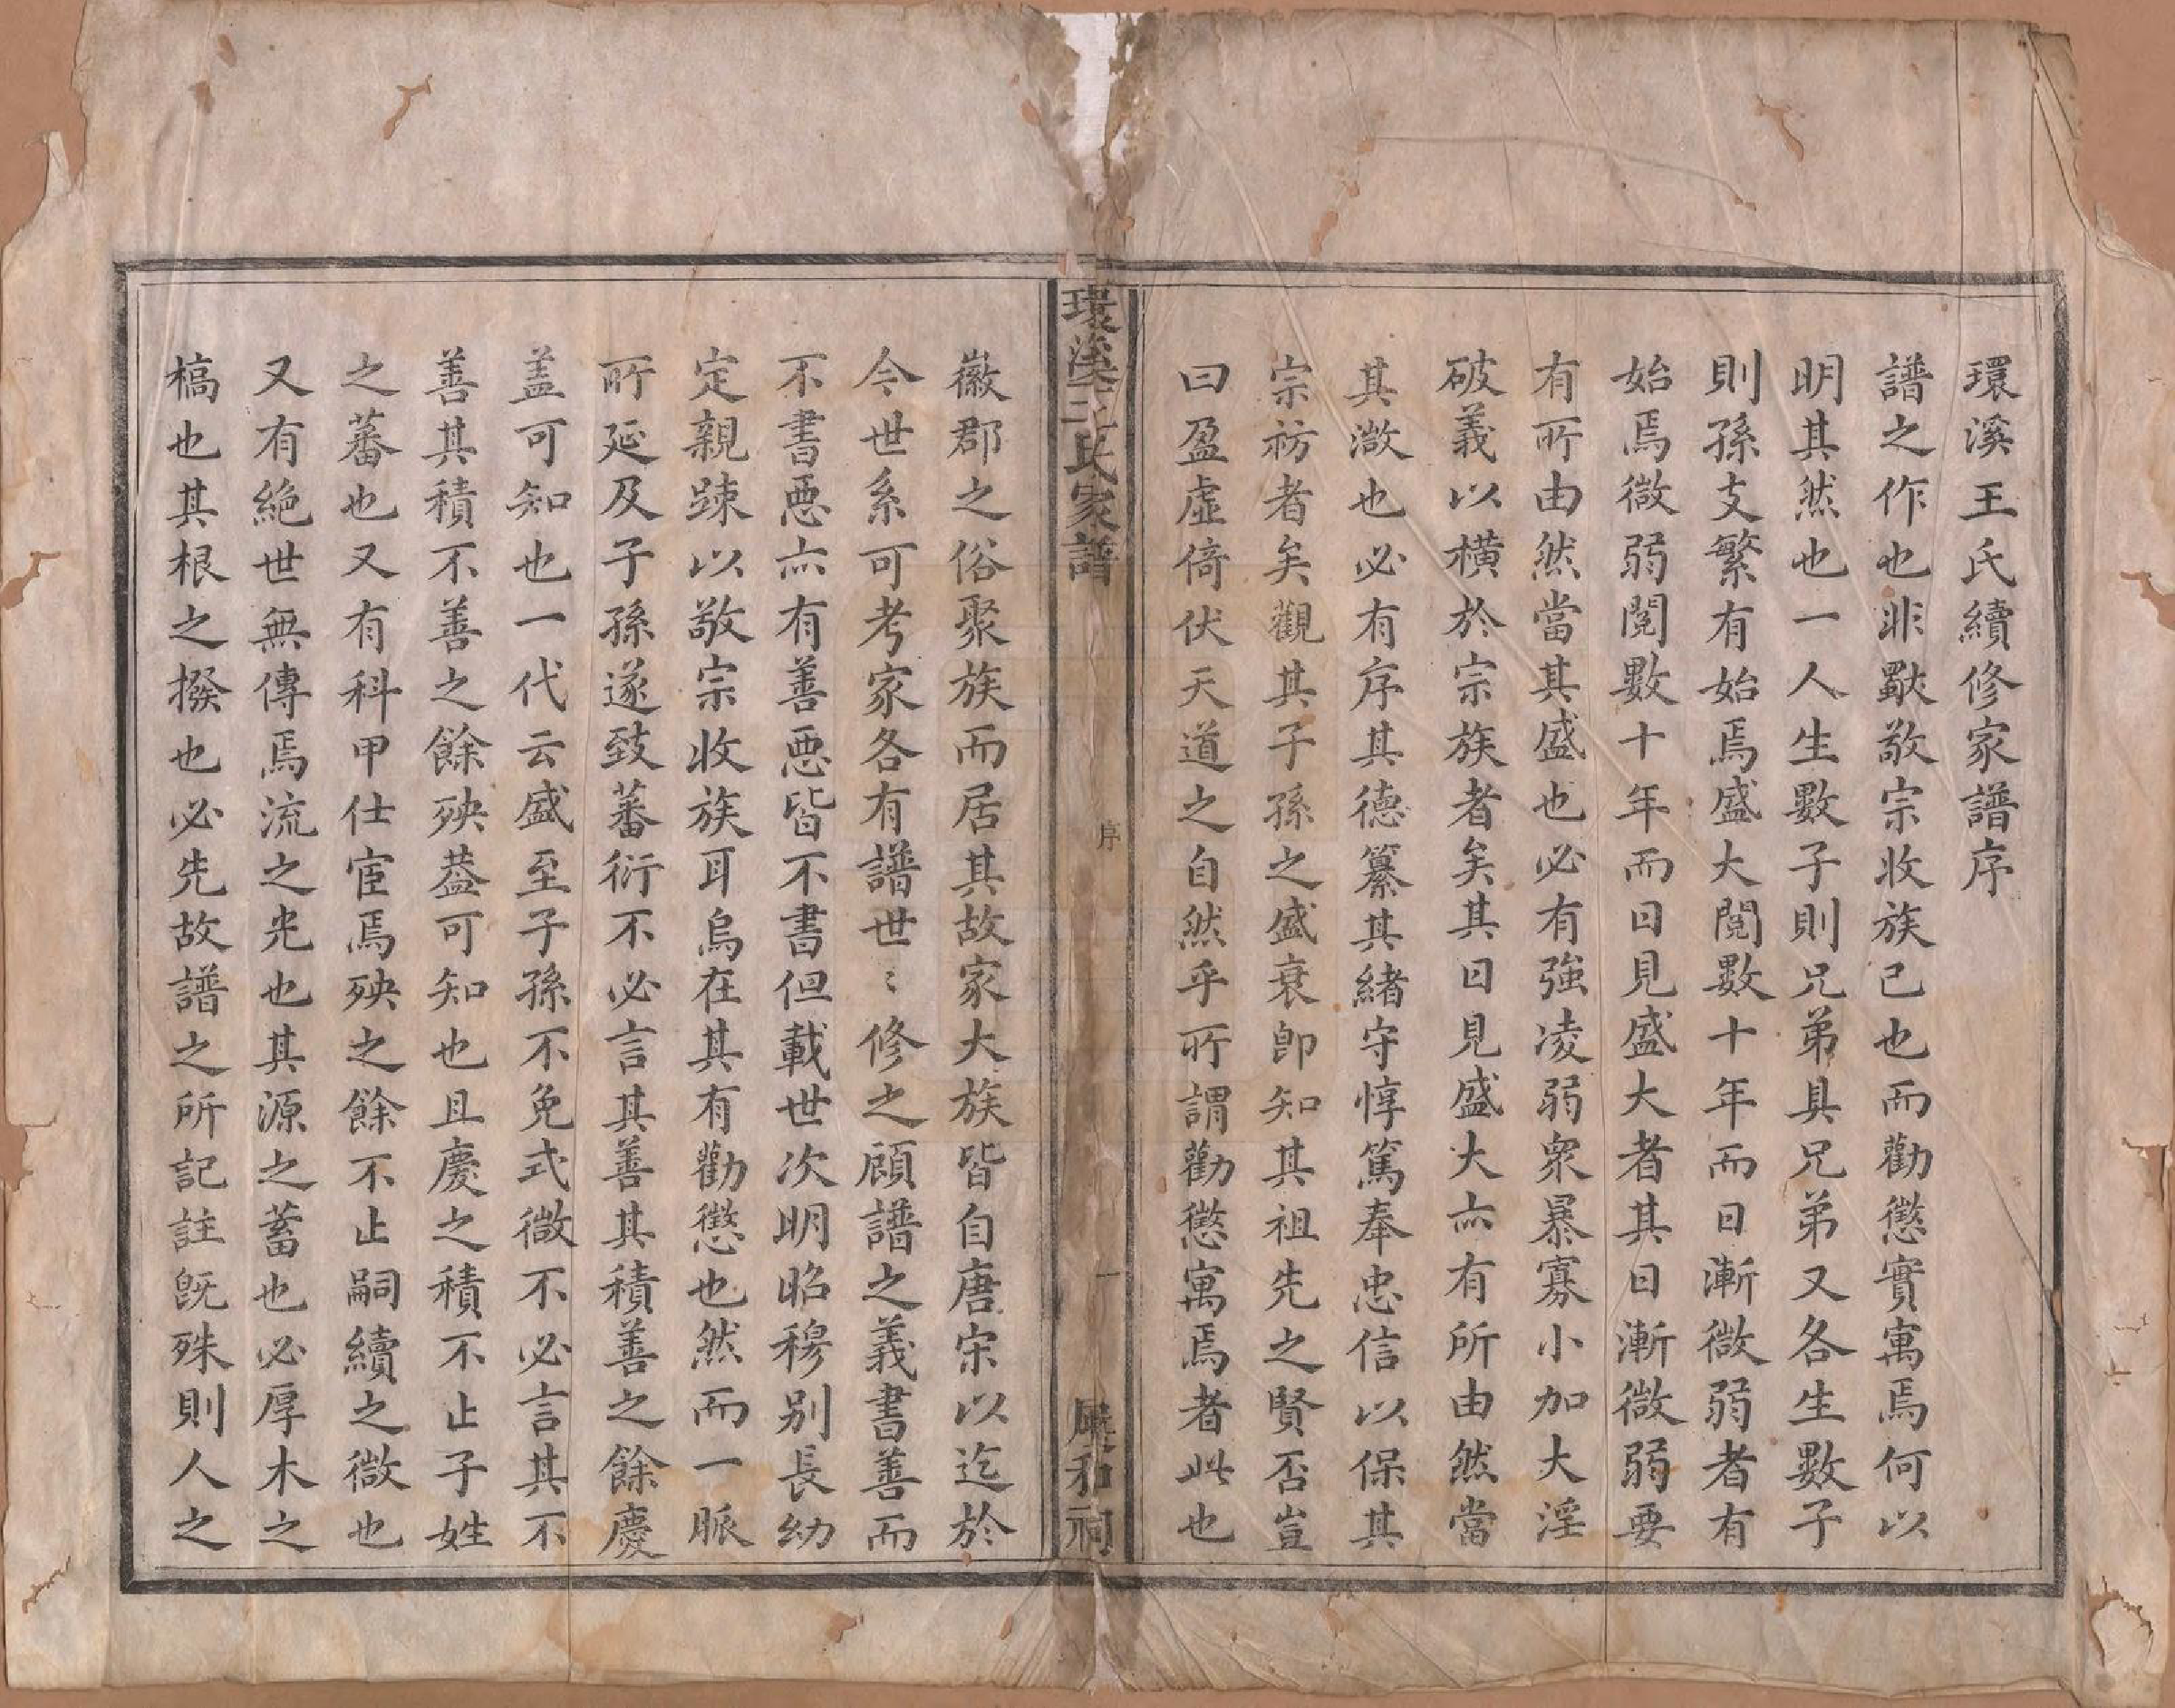 環溪王氏續修家譜序
譜之作也非歐敬宗收族已也而勸懲實寓焉何以
明其然也一人生數子則兄弟具兄弟又各生數子
則孫支繁有始焉盛大閱數十年而日漸微弱者有
始焉微弱閱數十年而日見盛大者其日漸微弱要
有所由然當其盛也必有強凌弱衆暴寡小加大淫
破義以橫於宗族者矣其日見盛大亦有所由然當
其微也必有序其德纂其緒守惇篤奉忠信以保其
宗祊者矣觀其子孫之盛衰卽知其祖先之賢否豈
曰盈虛倚伏天道之自然乎所謂勸懲寓焉者此也
環溪王氏家譜
序
一
展和祠
徽郡之俗聚族而居其故家大族皆自唐宋以迄於
今世系可考家各有譜世〻修之顧譜之義書善而
不書惡亦有善惡皆不書但載世次明昭穆別長幼
定親踈以敬宗收族耳烏在其有勸懲也然而一脈
所延及子孫遂致蕃衍不必言其善其積善之餘慶
盖可知也一代云盛至子孫不免式微不必言其不
善其積不善之餘殃葢可知也且慶之積不止子姓
之蕃也又有科甲仕宦焉殃之餘不止嗣續之微也
又有絕世無傳焉流之光也其源之蓄也必厚木之
槁也其根之撥也必先故譜之所記註旣殊則人之